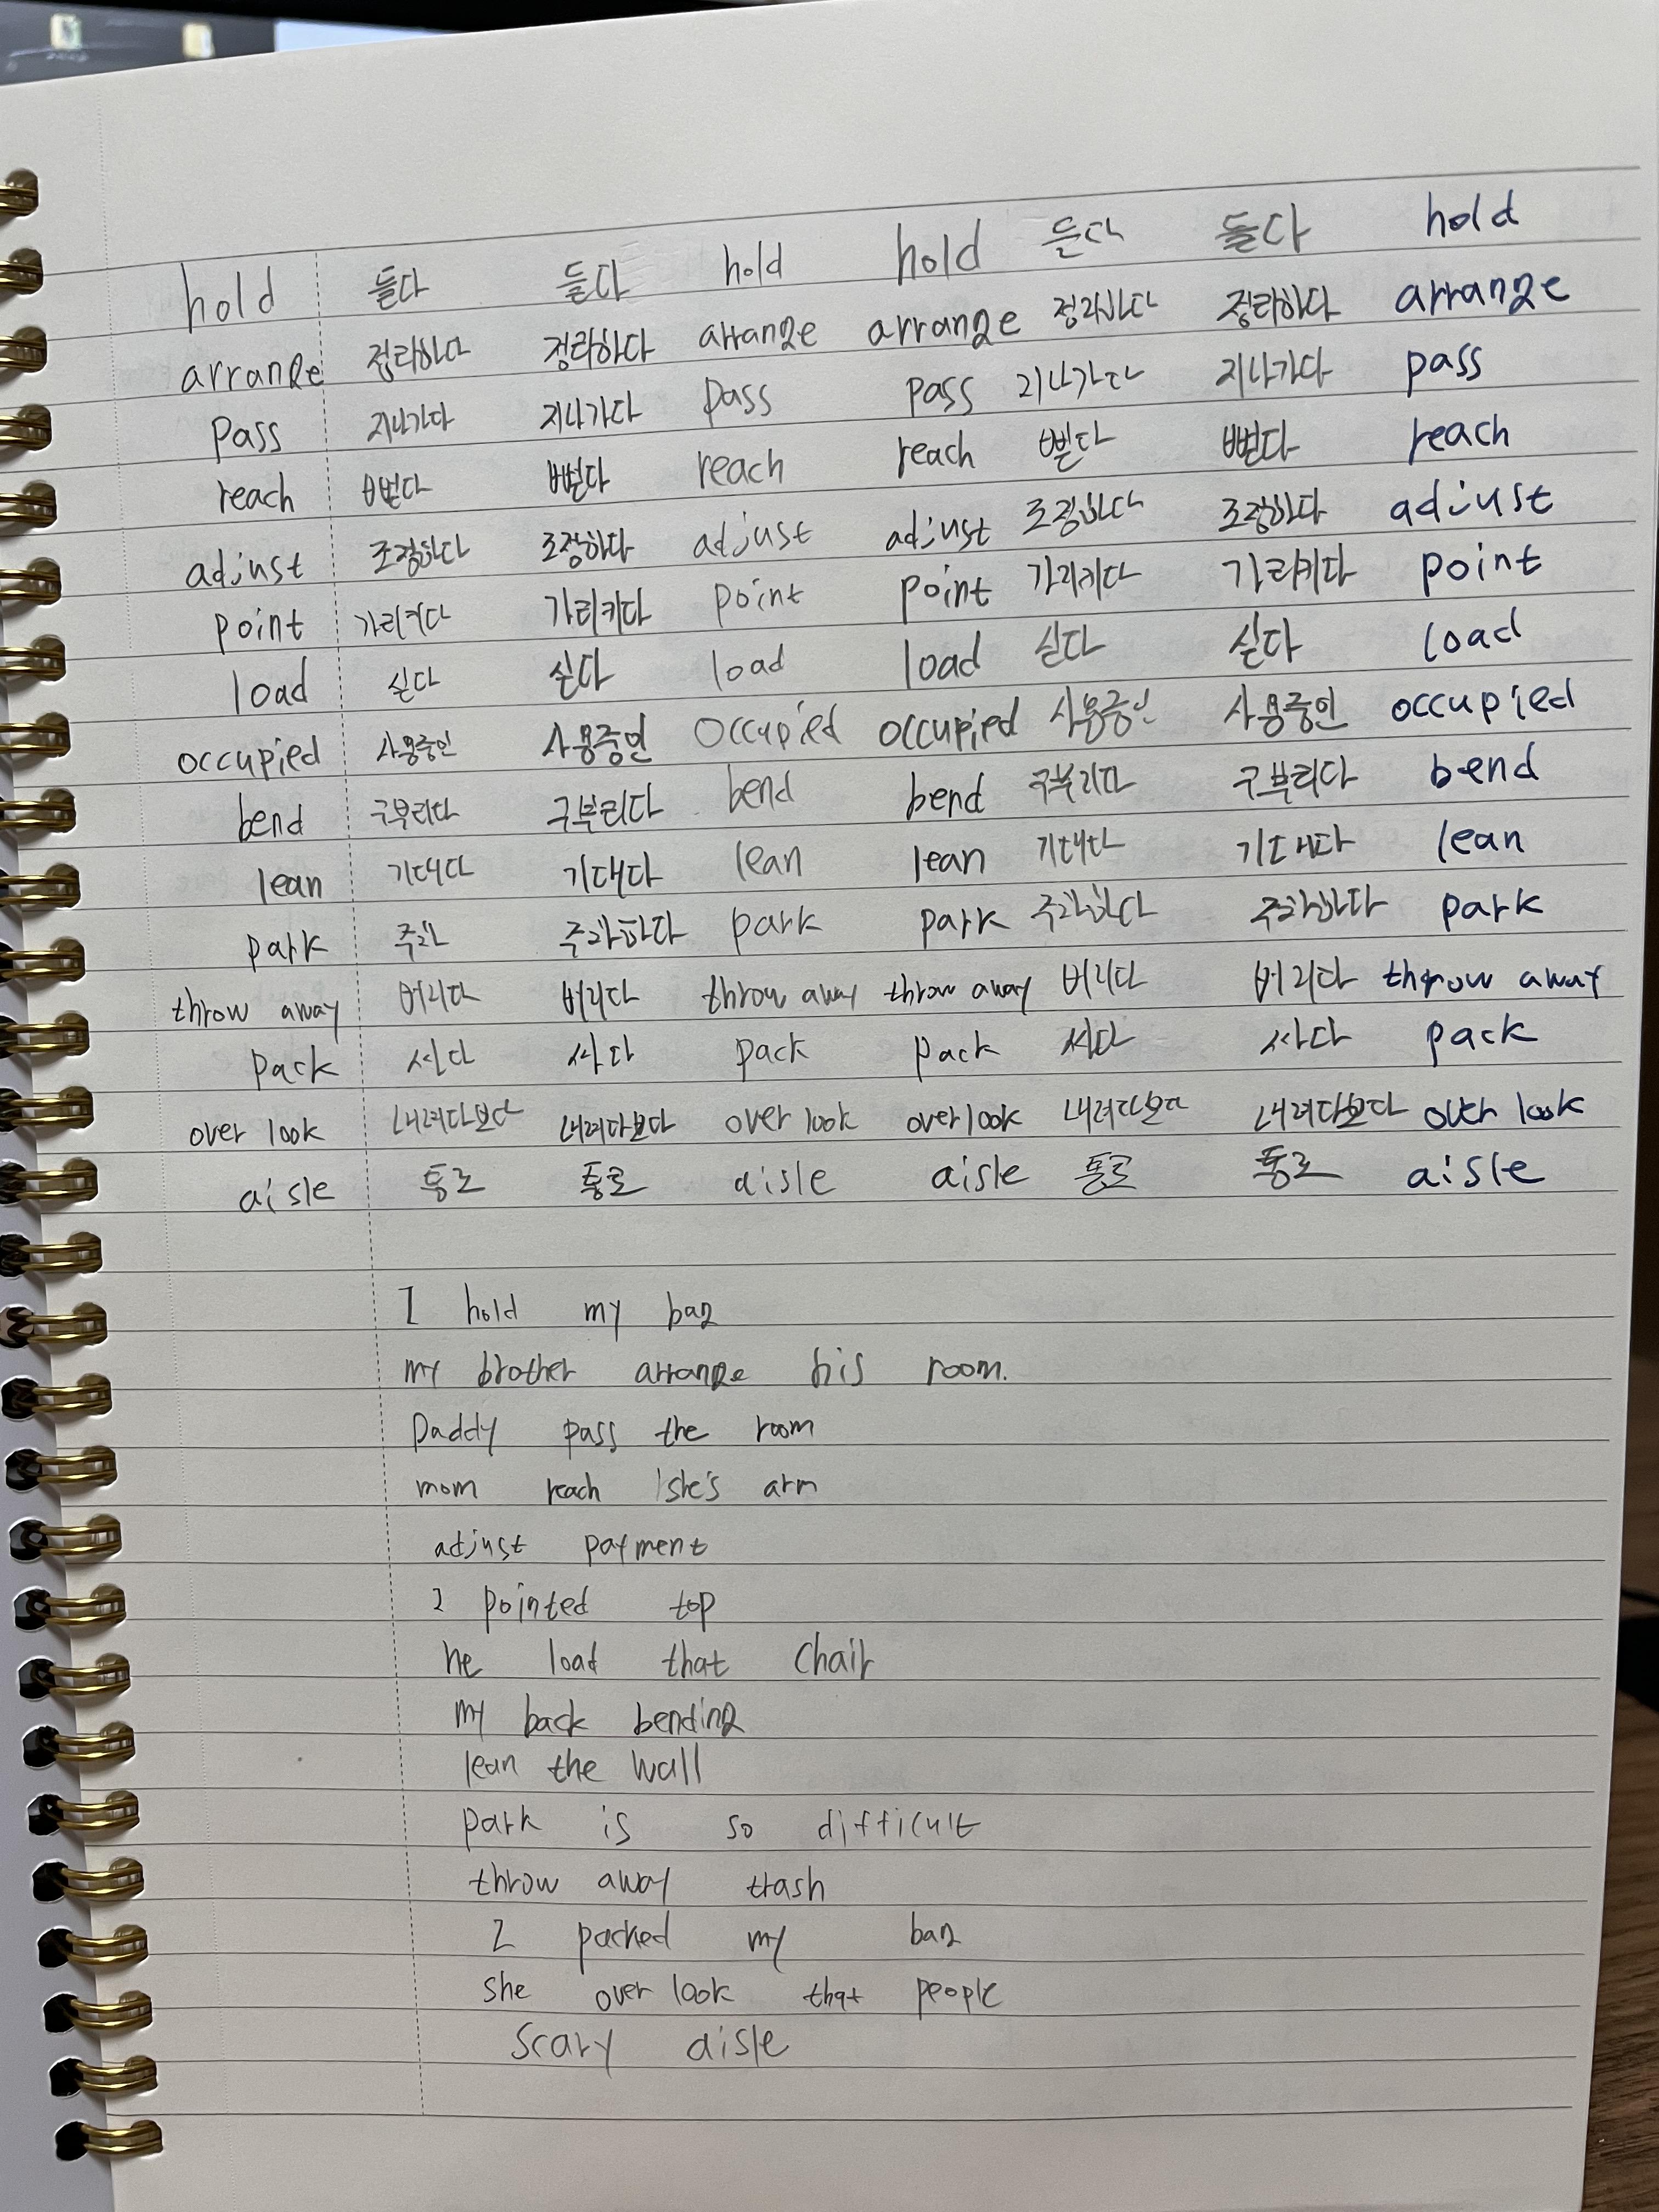 hold 들다 들다 hold hold 든다 들다 hold
arrange 정리하다 정리하다 arrange arrange 정리하다 정리하다 arrange
pass 지나가다 지나가다 pass pass 지나가다 지나가다 pass
reach 뻗다 뻗다 reach reach 뻗다 뻗다 reach
adjust 조정하다 조정하다 adjust adjust 조정하다 조정하다 adjust
point 가리키다 가리키다 point point 가리키다 가리키다 point
load 싣다 싣다 load load 싣다 싣다 load
occupied 사용중인 사용중인 occupied occupied 사용중인 사용중인 occupied
bend 구부리다 구부리다 bend bend 구부리다 구부리다 bend
lean 기대다 기대다 lean lean 기대다 기대다 lean
park 주차 주차하다 park park 주차하다 주차하다 park
throw away 버리다 버리다 throw away throw away 버리다 버리다 throw away
pack 싸다 싸다 pack pack 싸다 싸다 pack
over look 내려다보다 내려다보다 over look over look 내려다보다 내려다보다 over look
aisle 통로 통로 aisle aisle 통로 통로 aisle
I hold my bag
my brother arrange his room.
Daddy pass the room
mom reach she's arm
adjust payment
I pointed top
he load that chair
my back bending
lean the wall
park is so difficult
throw away trash
I packed my bag
she over look that people
scary aisle